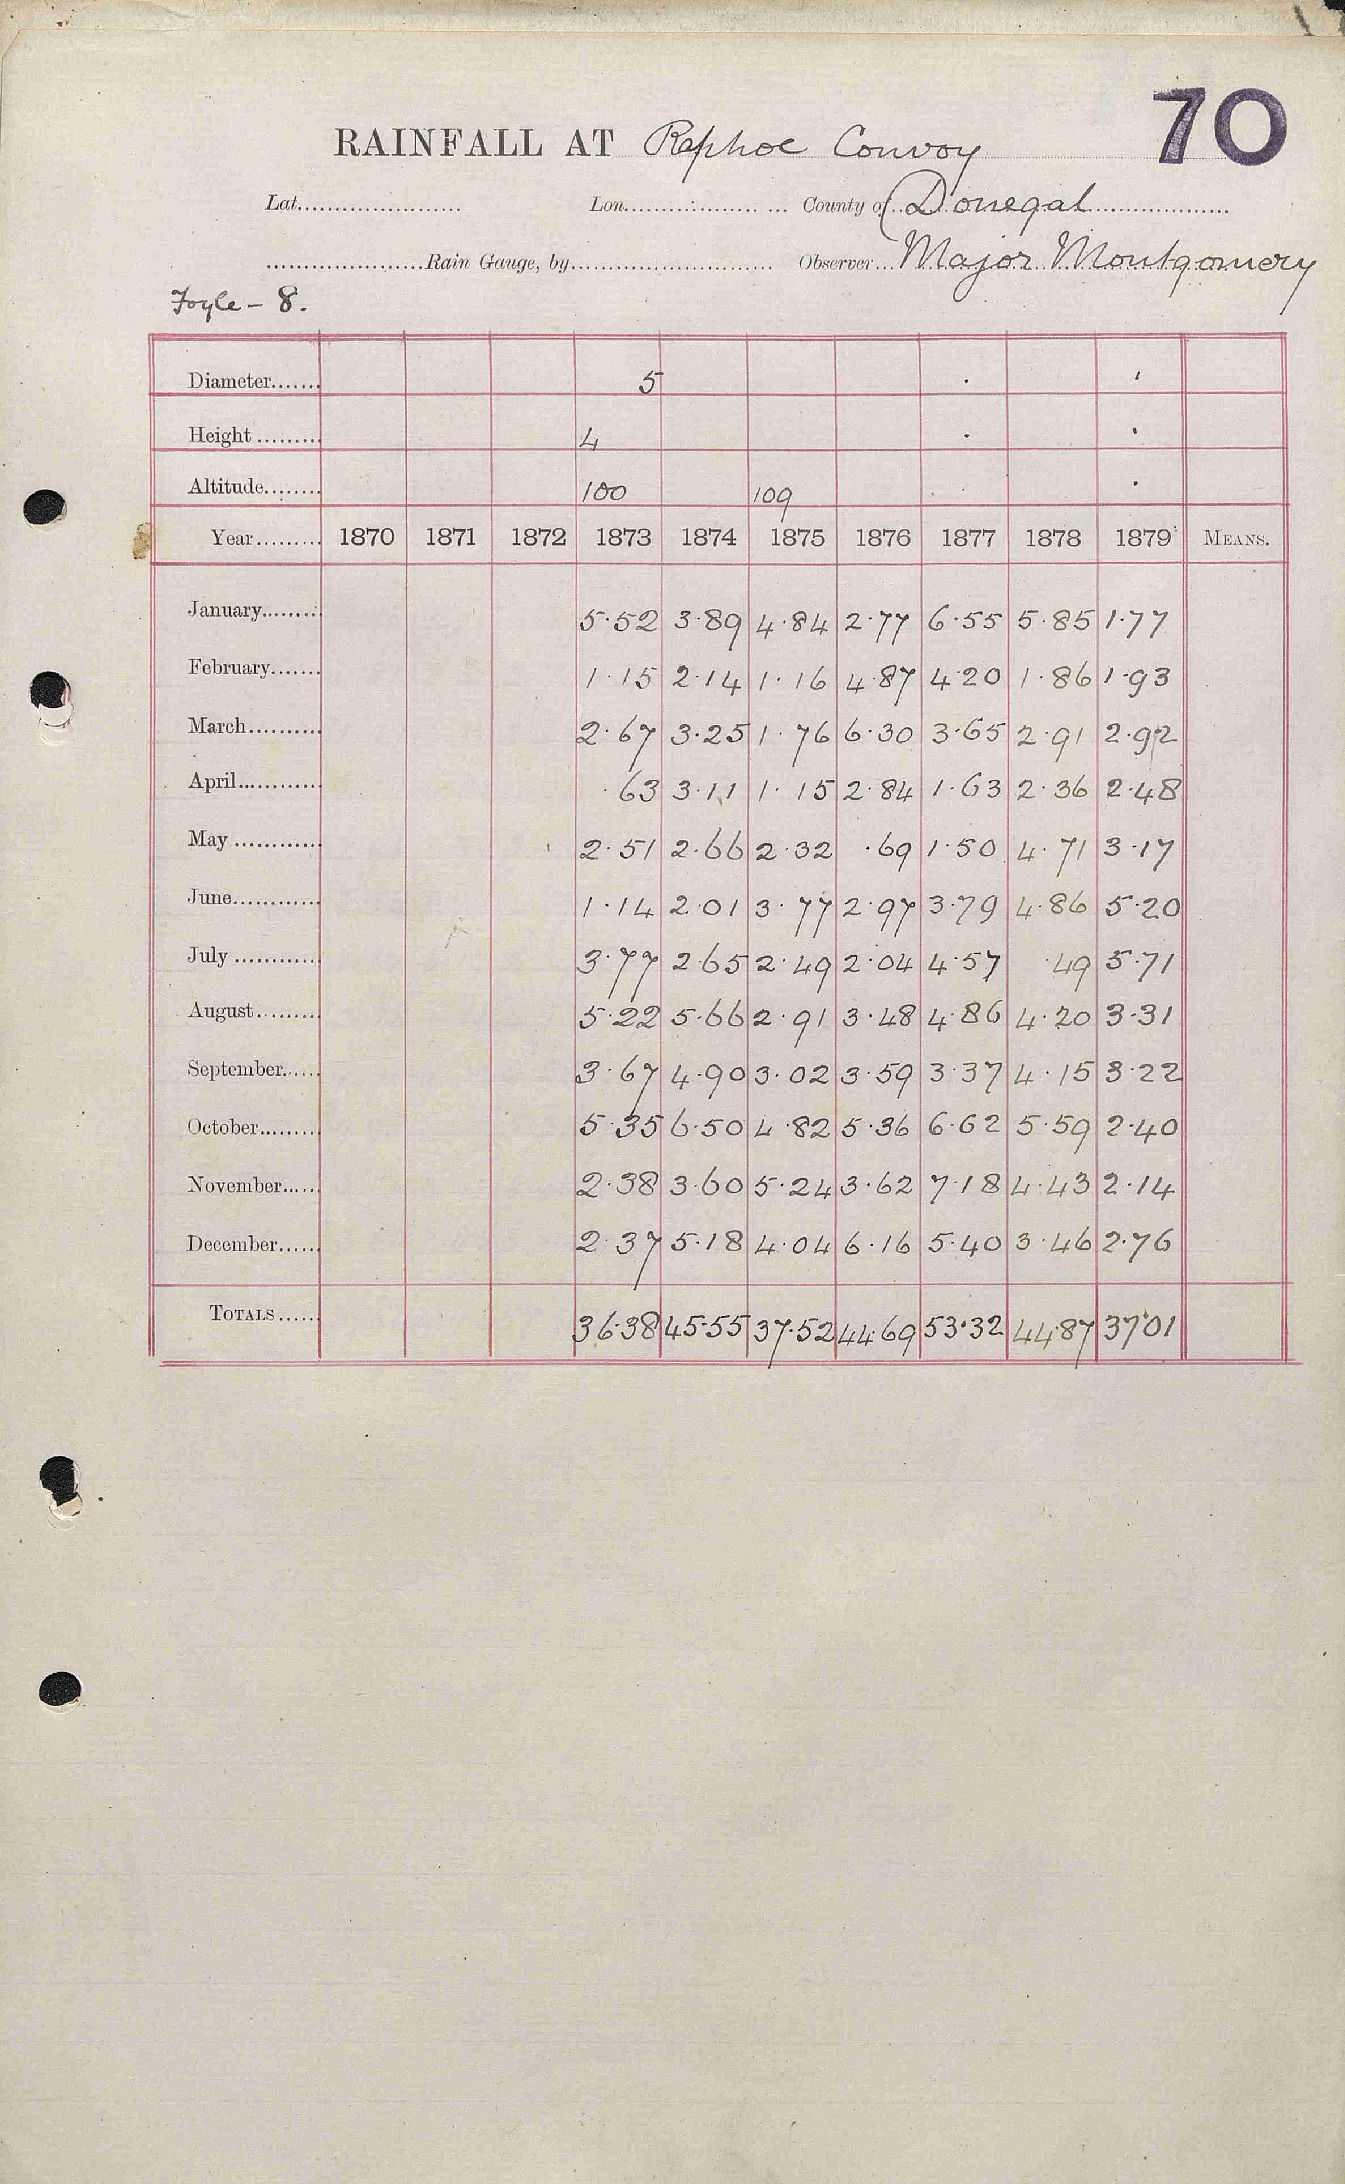 70
RAINFALL AT Raphoe Convoy
Lat. Lon. County of Donegal
Rain Gauge, by Observer Major Montgomery
Foyle - 8.
Diameter 5
Height 4
Altitude 100 109
Year 1870 1871 1872 1873 1874 1875 1876 1877 1878 1879 MEANS.
January 5.52 3.89 4.84 2.77 6.55 5.85 1.77
February 1.15 2.14 1.16 4.87 4.20 1.86 1.93
March 2.67 3.25 1.76 6.30 3.65 2.91 2.92
April .63 3.11 1.15 2.84 1.63 2.36 2.48
May 2.51 2.66 2.32 .69 1.50 4.71 3.17
June 1.14 2.01 3.77 2.97 3.79 4.86 5.20
July 3.77 2.65 2.49 2.04 4.57 .49 5.71
August 5.22 5.66 2.91 3.48 4.86 4.20 3.31
September 3.67 4.90 3.02 3.59 3.37 4.15 3.22
October 5.35 6.50 4.82 5.36 6.62 5.59 2.40
November 2.38 3.60 5.24 3.62 7.18 4.43 2.14
December 2.37 5.18 4.04 6.16 5.40 3.46 2.76
TOTALS 36.38 45.55 37.52 44.69 53.32 44.87 37.01